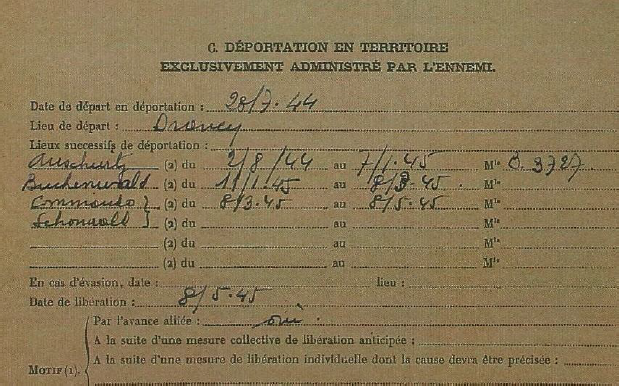 C. DÉPORTATION EN TERRITOIRE
EXCLUSIVEMENT ADMINISTRÉ PAR L'ENNEMI.
Date de départ en déportation : 28/7.44
Lieu de départ : Drancy
Lieux successifs de déportation :
Auschwitz (a) du 2/8/44 au 7/1.45 Mle 3727
Buchenwald (a) du 11/1.45 au 8/3.45
Commando } (a) du 8/3.45 au 8/5.45 Mle
(a) du au Mle
(a) du au Mle
(a) du au Mle
En cas d'évasion, date : lieu :
Date de libération : 8/5.45
Par l'avance alliée : oui
A la suite d'une mesure collective de libération anticipée :
A la suite d'une mesure de libération individuelle dont la cause devra être précisée :
MOTIF (1).